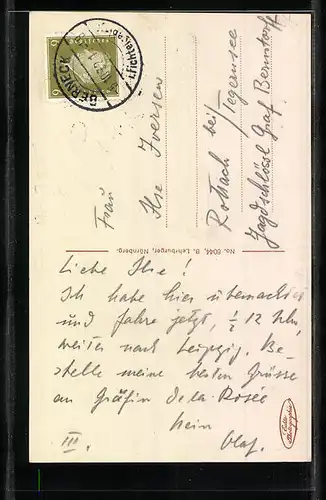 BERNECK
i. Fichtel
6
6
Frau
Ilse Iversen
Rottach bei
/Tegernsee
Jagdschlössl Graf Bernstorf
No. 8044, B. Lehrburger, Nürnberg.
Liebe Ilse!
Ich habe hier übernachtet
und fahre jetzt, ½ 12 Uhr,
weiter nach Leipzig. Be-
stelle meine besten Grüsse
an Gräfin de la Rosée
Dein
III. Olaf.
Echte
Photographie